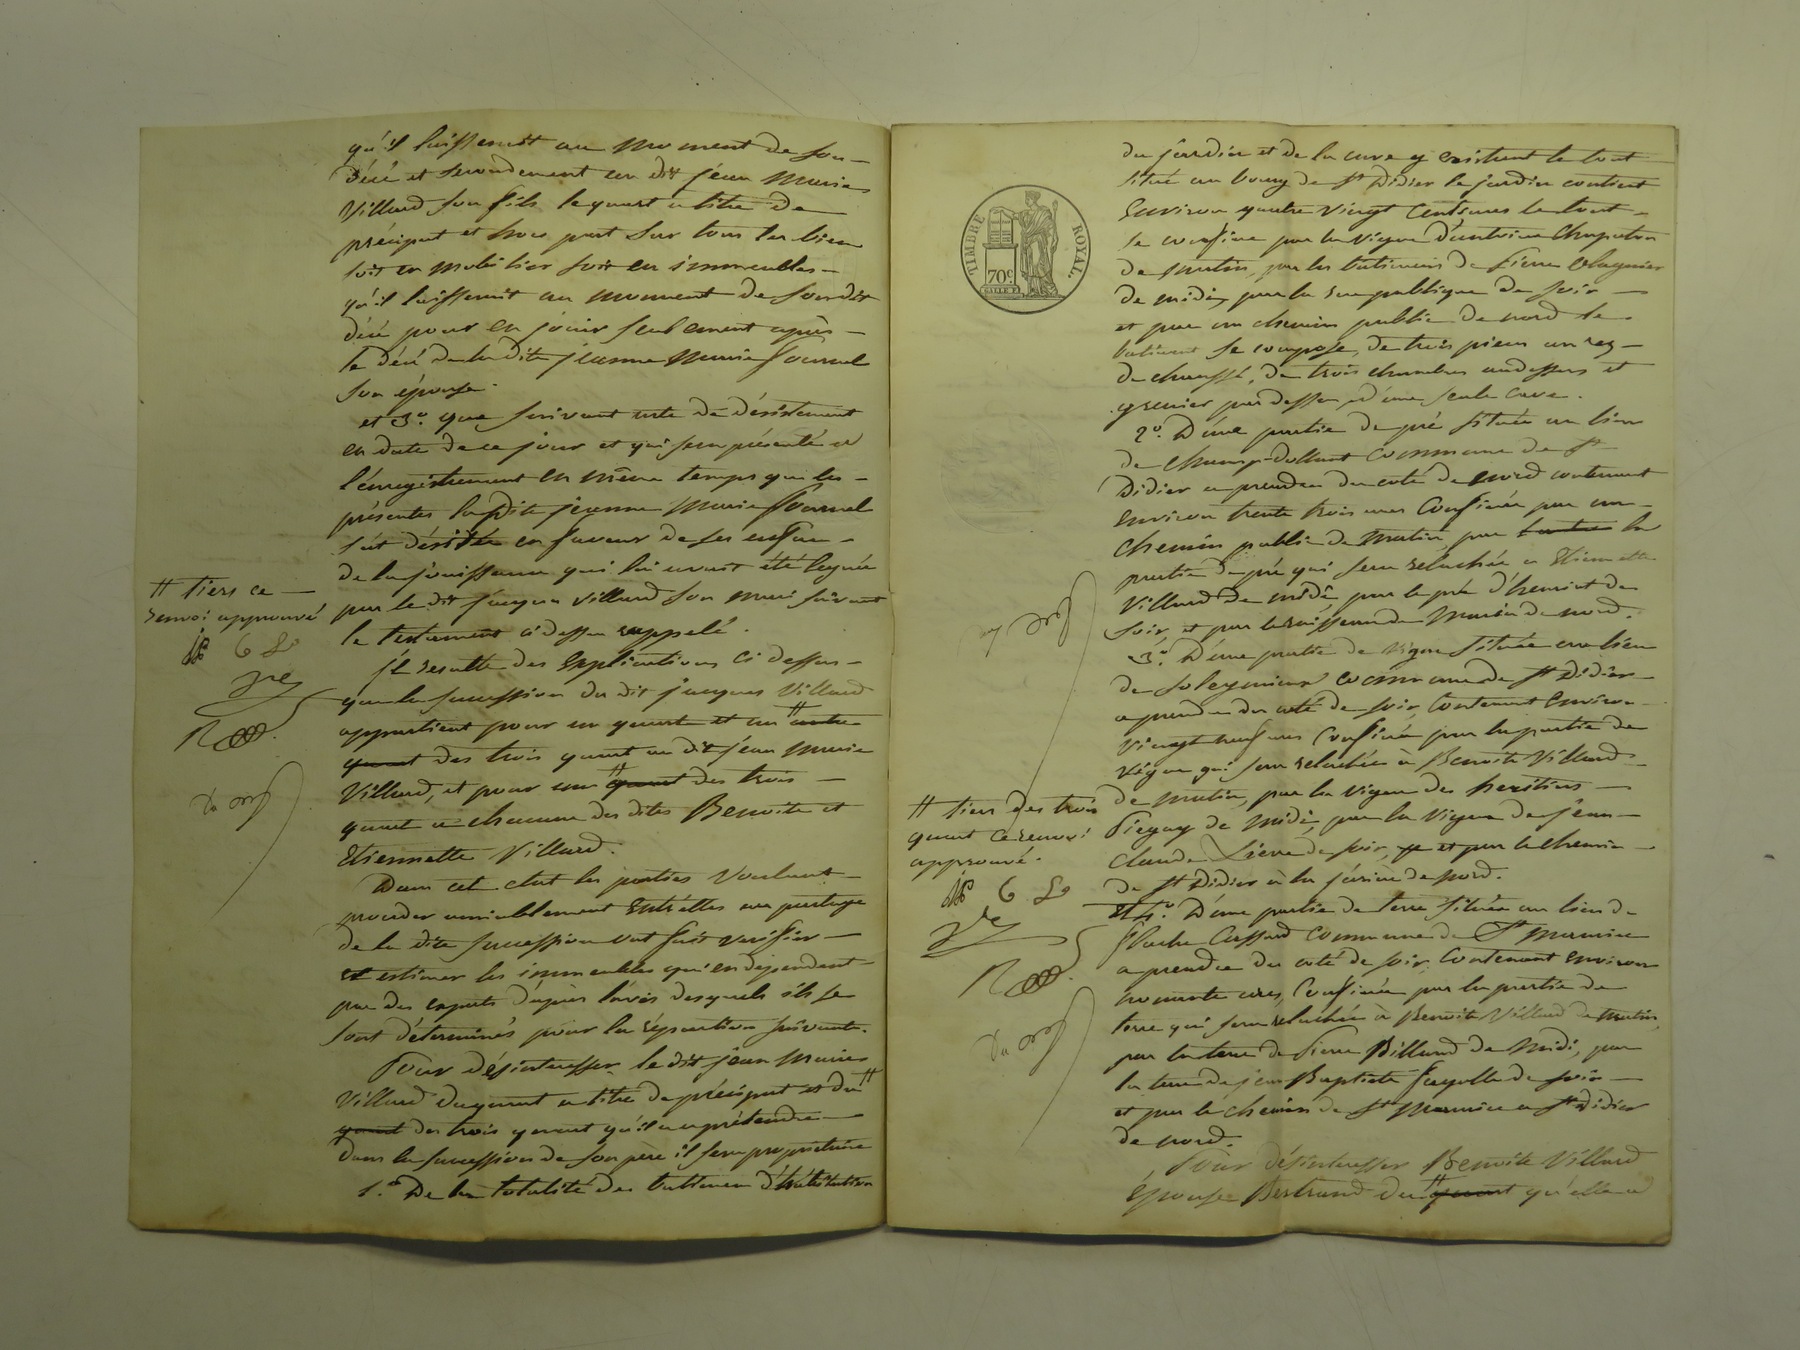 qu'il laisserait au moment de son
décé et secondement au dit jéan Marie
Villard son fils le quart a titre de
préciput et hors part sur tous les biens
soit en mobilier soit en immeubles
qu'il laisserait au moment de son dit
décé pour en jouir seulement après
le décé de la dite jéanne Marie Fournel
son épouse.
et 3.° que suivant acte de désistement
en date de ce jour et qui sera présenté a
l'énregistrement en même temps que les
présentes la dite jéanne Marie Fournel
s'est désistée en faveur de ses enfans
de la jouissance qui lui avait été léguée
par le dit jacques Villard son mari suivant
le testament ci dessus rappelé.
jl résulte des explications ci dessus
que la succession du dit jacques Villard
appartient pour un quart et un # autre
quart des trois quart au dit jéan Marie
Villard, et pour un # quart des trois
quart a chacune des dites Benoite et
Etiennette Villard.
Dans cet etat les parties voulant
proceder amiablement entr'elles au partage
de la dite succession ont fait vérifier
et estimer les immeubles qui en dependent
par des experts d'après l'avis desquels ils se
sont déterminés pour la répartition suivante.
Pour désintéresser le dit jean Marie
Villard du quart a titre de préciput et du #
quart des trois quart qu'il a a prétendre
dans la succession de son père il sera propriétaire
1.° De la totalité des batimens d'habitation
# tiers ce
renvoi approuvé
du jardin et de la cave y existant le tout
situé au bourg de St Didier le jardin contient
environ quatre vingt centiares le tout
se confine par la vigne d'antoine Chaputon
de matin, par les batimens de Pierre Blagnier
de midi, par la rue publique de soir
et par un chemin public de nord le
batiment se compose, de trois pieces au rez
de chaussé, de trois chambres audessus et
grenier par dessus, d'une seule cave.
2.° D'une partie de pré située au lieu
de Champ-dollant commune de St
Didier a prendre du coté de nord contenant
environ trente trois ares confinée par un
chemin public de matin, par la
partie de pré qui sera relachée a Etiennette
Villard de midi par le pré d'henriot de
soir, et par le ruisseau de Morin de nord.
3.° D'une partie de vigne située au lieu
de Soleymieux commune de St Didier
a prendre du coté de soir, contenant environ
vingt neuf ares confinée par la partie de
vigne qui sera relachée à Benoite Villard
de matin, par la vigne des héritiers
Piegay de midi, par la vigne de jéan
Claude Lierre de soir, et par le chemin
de St Didier à la jarine de nord.
Et 4.° D'une partie de terre située au lieu de
Plache Cassard commune de St Maurice
a prendre du coté de soir, contenant environ
nonante ares, confinée par la partie de
terre qui sera relachée à Benoite Villard de matin,
par la terre de Pierre Billard de midi, par
la terre de jéan Baptiste Fayolle de soir
et par le chemin de St Maurice a St Didier
de nord.
Pour désintéresser Benoite Villard
épouse Bertrand du # quart qu'elle a
TIMBRE ROYAL.
70c
# tiers des trois
quart ce renvoi
approuvé.